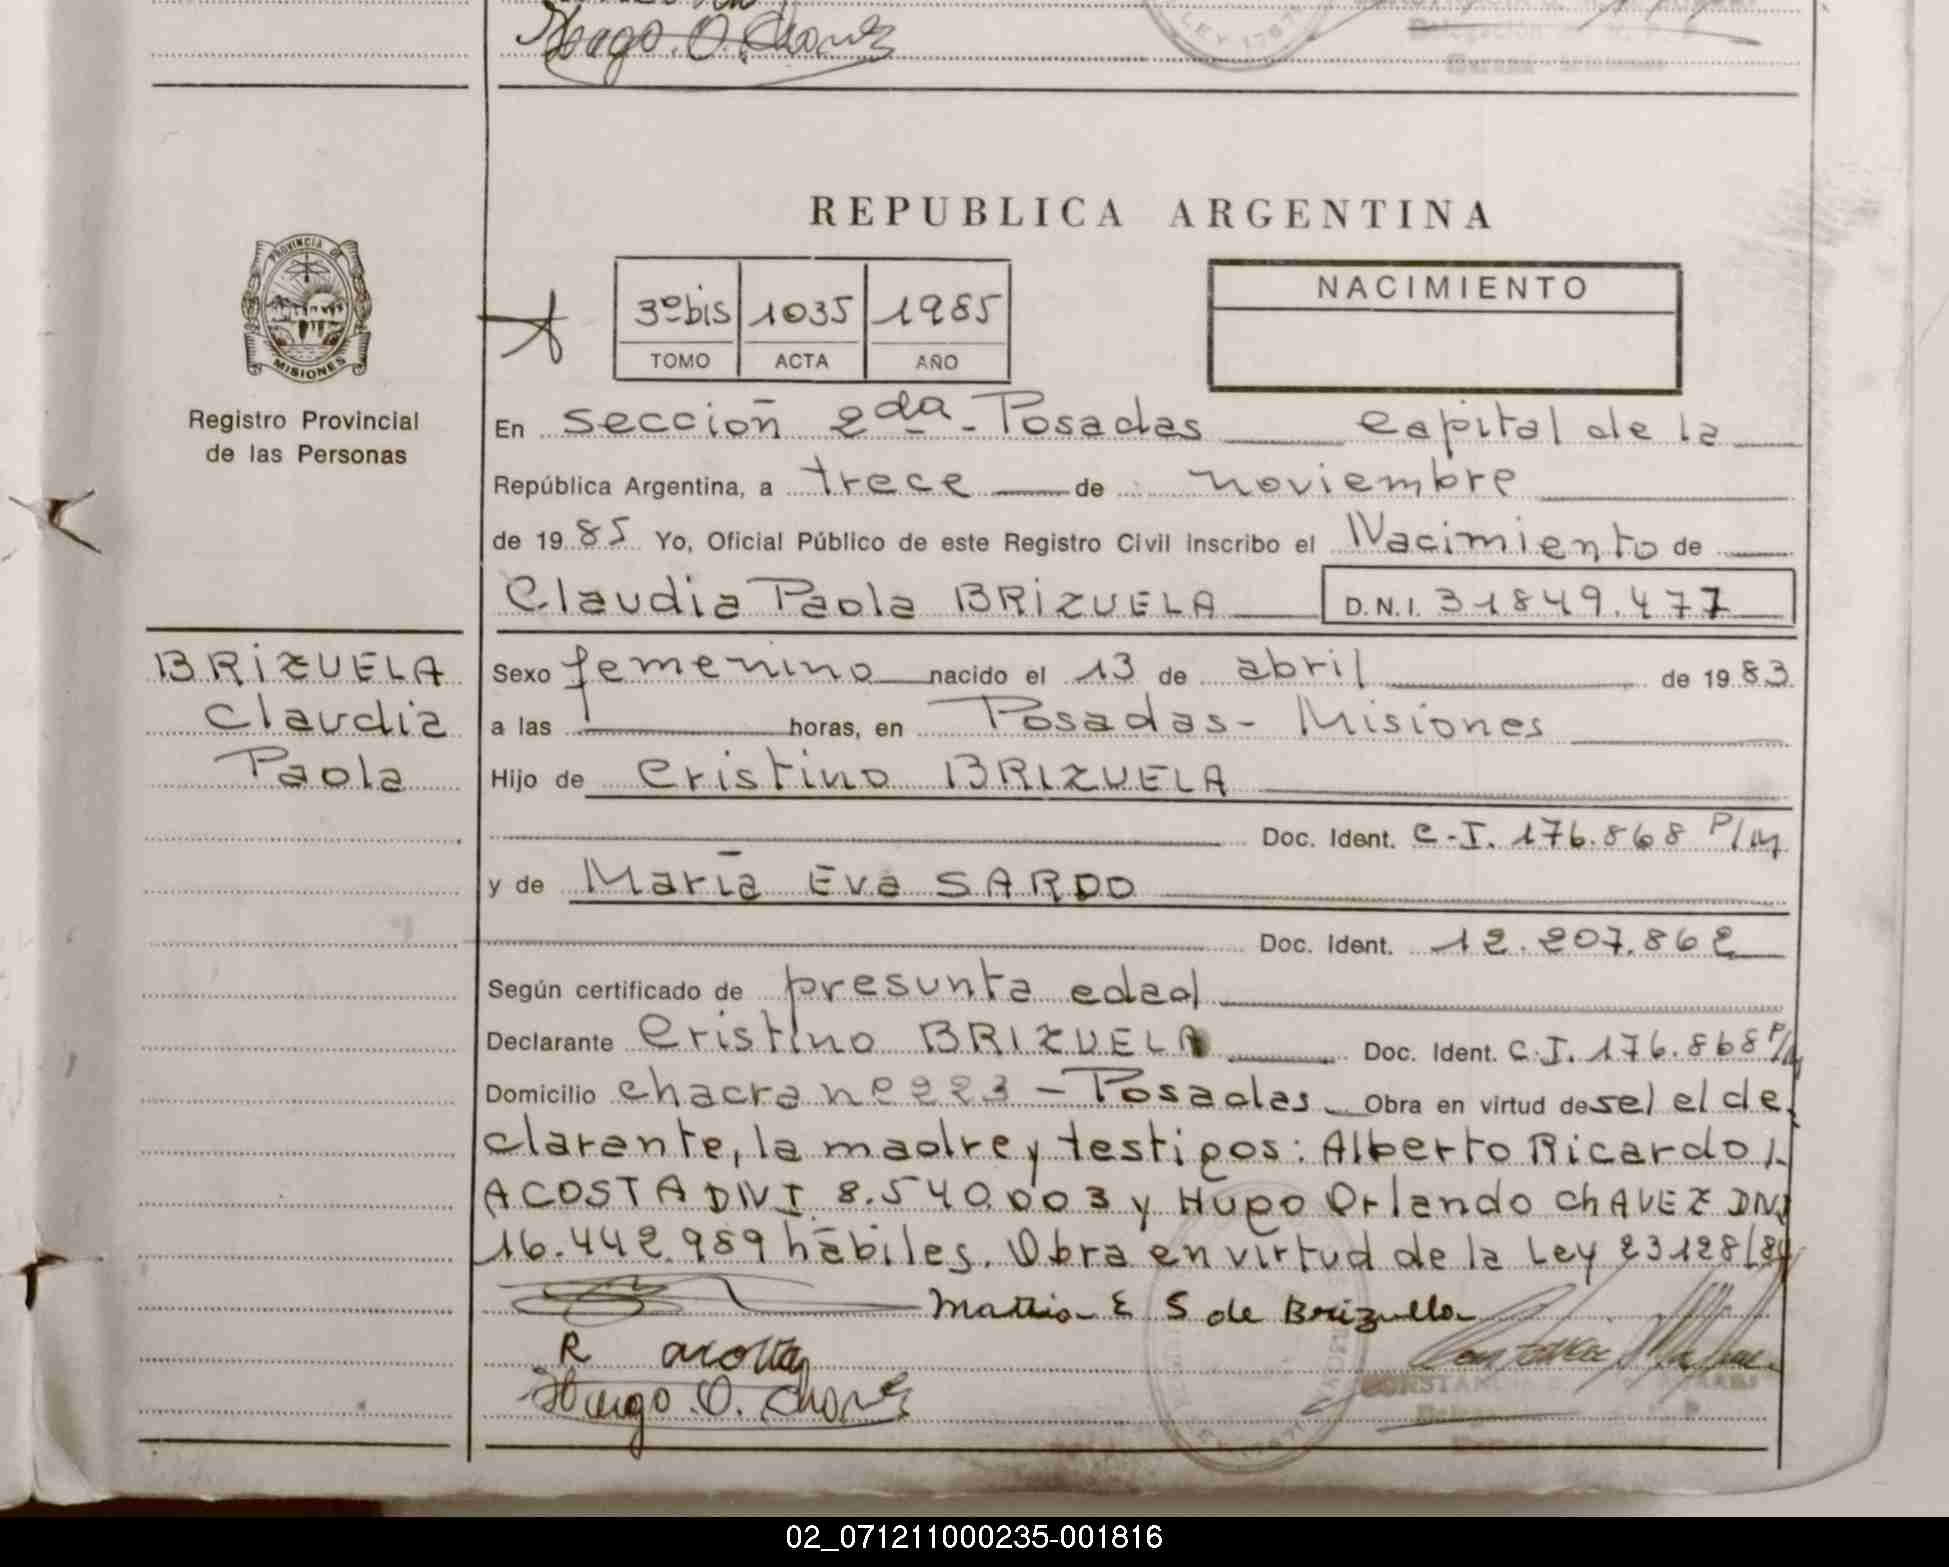 Hugo.O.Chavez
LEY 1767
Delegación
REPUBLICA ARGENTINA
PROVINCIA DE
MISIONES
Registro Provincial
de las Personas
3º bis 1035 1985
TOMO ACTA AÑO
NACIMIENTO
En sección 2da - Posadas capital de la
República Argentina, a trece de noviembre
de 1985 Yo, Oficial Público de este Registro Civil inscribo el Nacimiento de
Claudia Paola BRIZUELA D.N.I. 31849.477
BRIZUELA
Claudia
Paola
Sexo femenino nacido el 13 de abril de 1983
a las horas, en Posadas - Misiones
Hijo de Cristino BRIZUELA
Doc. Ident. C.I. 176.868 P/M
y de María Eva SARDO
Doc. Ident. 12.207.862
Según certificado de presunta edad
Declarante Cristino BRIZUELA Doc. Ident. C.I. 176.868 P/M
Domicilio chacra nº 223 - Posadas Obra en virtud de sel el de
clarante, la madre y testigos: Alberto Ricardo
ACOSTA DNI 8.540.003 y Hugo Orlando CHAVEZ DNI
16.442.989 hábiles. Obra en virtud de la Ley 23128/84
E S de Brizuella
R acosta
Hugo.O.Chavez
02_071211000235-001816